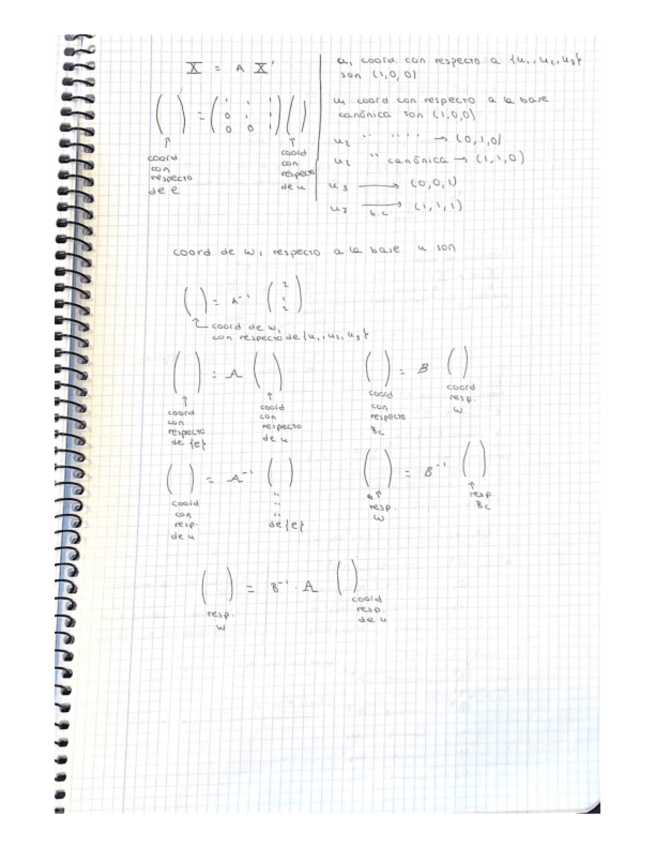 X = A X'
( ) = ( 1 1 1
0 1 1
0 0 1 ) ( )
↑
coord
con
respecto
de e
↑
coord
con
respecto
de u
u₁ coord. con respecto a {u₁, u₂, u₃}
son (1,0,0)
u₁ coord con respecto a la base
canónica son (1,0,0)
u₂ " " " " → (0,1,0)
u₂ " canónica → (1,1,0)
u₃ → (0,0,1)
u₃ → b.c (1,1,1)
coord de w₁ respecto a la base u son
( ) = A⁻¹ ( 2
1
2 )
coord de w₁
con respecto de {u₁, u₂, u₃}
( ) = A ( )
↑
coord
con
respecto
de {e}
↑
coord
con
respecto
de u
( ) = B ( )
coord
con
respecto
Bc
coord
resp.
w
( ) = A⁻¹ ( )
coord
con
resp.
de u
"
"
"
de {e}
( ) = B⁻¹ ( )
↑
resp.
w
↑
resp.
Bc
( ) = B⁻¹ · A ( )
resp.
w
coord
resp.
de u